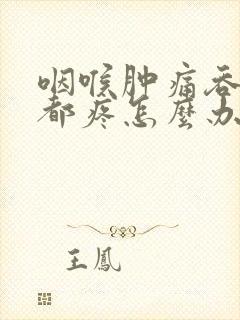 咽喉肿痛吞
都疼怎麼办
王鳳